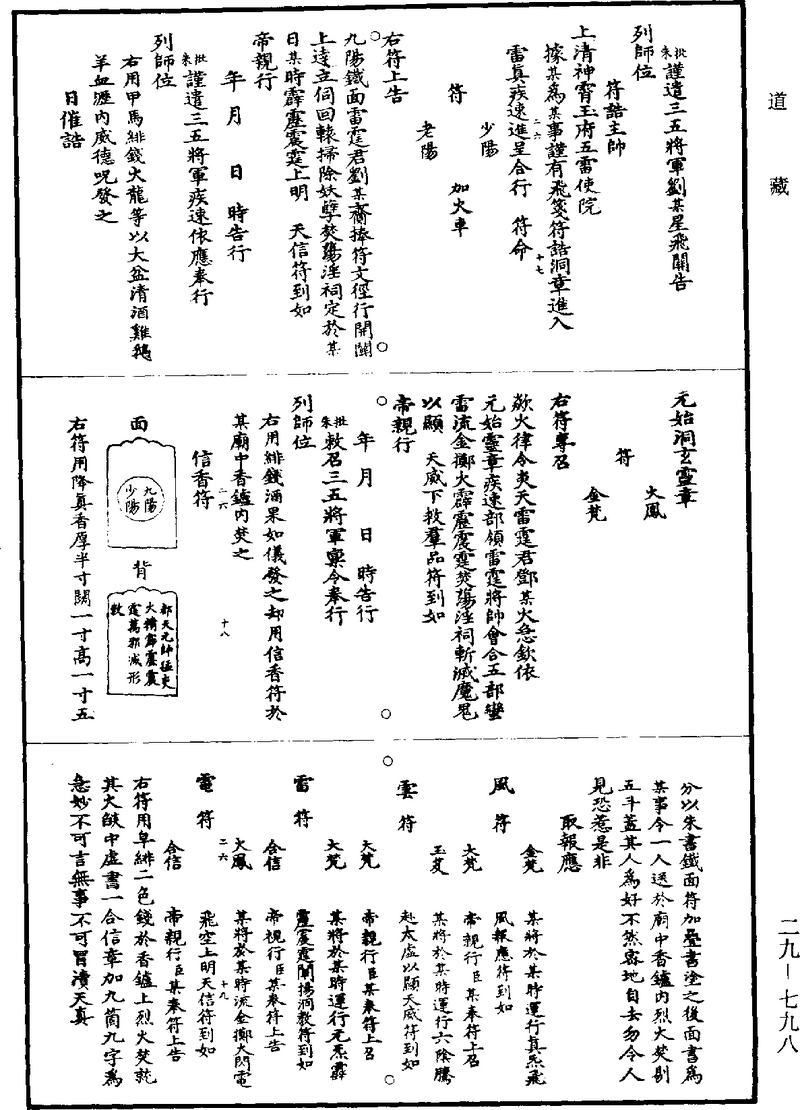 道藏
批朱謹遣三五將軍劉某星飛關告
列師位
符誥主帥
上清神霄玉府五雷使院
據某為某事謹有飛箋符誥洞章進入
雷真疾速進呈合行　符命
二六
十七
少陽
符　加火車
老陽
右符上告
九陽鐵面雷霆君劉某齎捧符文徑行開闢
上達立伺回轅掃除妖孽焚蕩淫祠定於某
日某時霹靂震霆上明　天信符到如
帝親行
年　月　日　時告行
批朱謹遣三五將軍疾速依應奉行
列師位
右用甲馬緋錢火龍等以大盆清酒雞鵝
羊血瀝內威德呪發之
日催誥
元始洞玄靈章
火鳳
符
金梵
右符專召
歘火律令炎天雷霆君鄧某火急欽依
元始靈章疾速部領雷霆將帥會合五部蠻
雷流金擲火霹靂震霆焚蕩淫祠斬滅魔鬼
以顯　天威下救羣品符到如
帝親行
年　月　日　時告行
批朱敕召三五將軍稟令奉行
列師位
右用緋錢酒果如儀發之却用信香符於
其廟中香鑪內焚之
二六
十八
信香符
面
九陽
少陽
背
都天元帥猛吏
火精霹靂震
霆萬邪滅形
敕
右符用降真香厚半寸闊一寸高一寸五
分以朱書鐵面符加疊書塗之後面書為
某事令一人送於廟中香鑪內烈火焚剔
五斗蓋其人為好不然密地自去勿令人
見恐惹是非
取報應
金梵　某將於某時運行真炁飛
風符　風報應符到如
大梵　帝親行臣某奉符上召
玉芨　某將於某時運行六陰騰
雲符　赴太虛以顯天威符到如
大梵　帝親行臣某奉符上召
大梵　某將於某時運行元炁霹
雷符　靂震霆闡揚洞教符到如
合信　帝親行臣某奉符上告
火鳳　某將於某時流金擲火閃電
二六
十九
電符　飛空上明天信符到如
合信　帝親行臣某奉符上告
右符用皁緋二色錢於香鑪上烈火焚訖
其火燄中虛書一合信章加九箇九字為
急妙不可言無事不可冒瀆天真
二九—七九八